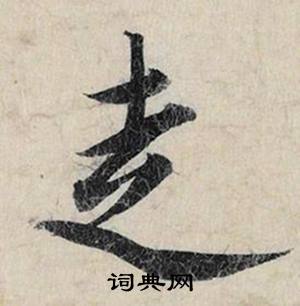 走
词典网